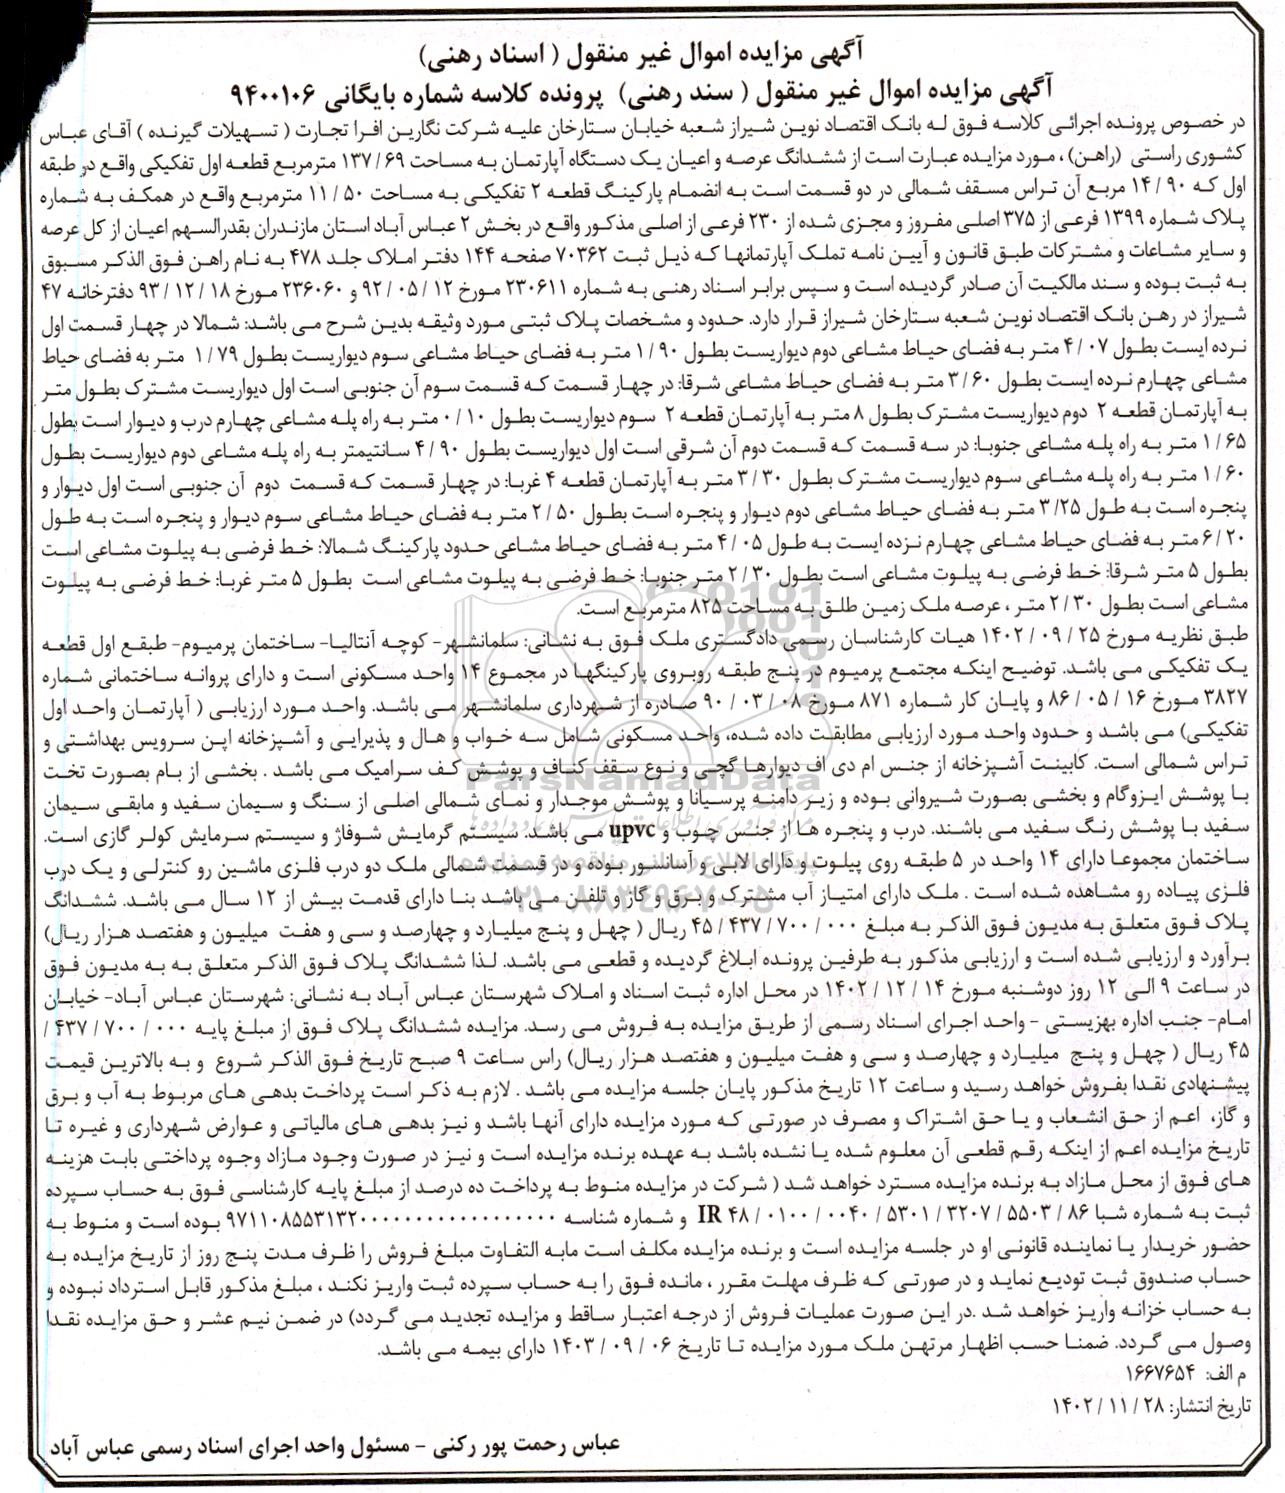 آگهی مزایده اموال غیر منقول ( اسناد رهنی)
آگهی مزایده اموال غیر منقول ( سند رهنی)  پرونده کلاسه شماره بایگانی ۹۴۰۰۱۰۶
در خصوص پرونده اجرائی کلاسه فوق له بانک اقتصاد نوین شیراز شعبه خیابان ستارخان علیه شرکت نگارین افرا تجارت ( تسهیلات گیرنده ) آقای عباس
کشوری راستی  (راهن)، مورد مزایده عبارت است از ششدانگ عرصه و اعیان یک دستگاه آپارتمان به مساحت ۱۳۷/۶۹ مترمربع قطعه اول تفکیکی واقع در طبقه
اول که ۱۴/۹۰ مربع آن تراس مسقف شمالی در دو قسمت است به انضمام پارکینگ قطعه ۲ تفکیکی به مساحت ۱۱/۵۰ مترمربع واقع در همکف به شماره
پلاک شماره ۱۳۹۹ فرعی از ۳۷۵ اصلی مفروز و مجزی شده از ۲۳۰ فرعی از اصلی مذکور واقع در بخش ۲ عباس آباد استان مازندران بقدرالسهم اعیان از کل عرصه
و سایر مشاعات و مشترکات طبق قانون و آیین نامه تملک آپارتمانها که ذیل ثبت ۷۰۳۶۲ صفحه ۱۴۴ دفتر املاک جلد ۴۷۸ به نام راهن فوق الذکر مسبوق
به ثبت بوده و سند مالکیت آن صادر گردیده است و سپس برابر اسناد رهنی به شماره ۲۳۰۶۱۱ مورخ ۹۲/۰۵/۱۲ و ۲۳۶۰۶۰ مورخ ۹۳/۱۲/۱۸ دفترخانه ۴۷
شیراز در رهن بانک اقتصاد نوین شعبه ستارخان شیراز قرار دارد. حدود و مشخصات پلاک ثبتی مورد وثیقه بدین شرح می باشد: شمالا در چهار قسمت اول
نرده ایست بطول ۴/۰۷ متر به فضای حیاط مشاعی دوم دیواریست بطول ۱/۹۰ متر به فضای حیاط مشاعی سوم دیواریست بطول ۱/۷۹  متر به فضای حیاط
مشاعی چهارم نرده ایست بطول ۳/۶۰ متر به فضای حیاط مشاعی شرقا: در چهار قسمت که قسمت سوم آن جنوبی است اول دیواریست مشترک بطول متر
به آپارتمان قطعه ۲  دوم دیواریست مشترک بطول ۸ متر به آپارتمان قطعه ۲  سوم دیواریست بطول ۰/۱۰ متر به راه پله مشاعی چهارم درب و دیوار است بطول
۱/۶۵ متر به راه پله مشاعی جنوبا: در سه قسمت که قسمت دوم آن شرقی است اول دیواریست بطول ۴/۹۰ سانتیمتر به راه پله مشاعی دوم دیواریست بطول
۱/۶۰ متر به راه پله مشاعی سوم دیواریست مشترک بطول ۳/۳۰ متر به آپارتمان قطعه ۴ غربا: در چهار قسمت که قسمت  دوم  آن جنوبی است اول دیوار و
پنجره است به طول ۳/۲۵ متر به فضای حیاط مشاعی دوم دیوار و پنجره است بطول ۲/۵۰ متر به فضای حیاط مشاعی سوم دیوار و پنجره است به طول
۶/۲۰ متر به فضای حیاط مشاعی چهارم نزده ایست به طول ۴/۰۵ متر به فضای حیاط مشاعی حدود پارکینگ شمالا: خط فرضی به پیلوت مشاعی است
بطول ۵ متر شرقا: خط فرضی به پیلوت مشاعی است بطول ۲/۳۰ متر جنوبا: خط فرضی به پیلوت مشاعی است  بطول ۵ متر غربا: خط فرضی به پیلوت
مشاعی است بطول ۲/۳۰ متر ، عرصه ملک زمین طلق به مساحت ۸۲۵ مترمربع است.
طبق نظریه مورخ ۱۴۰۲/۰۹/۲۵ هیات کارشناسان رسمی دادگستری ملک فوق به نشانی: سلمانشهر- کوچه آنتالیا- ساختمان پرمیوم- طبقع اول قطعه
یک تفکیکی می باشد. توضیح اینکه مجتمع پرمیوم در پنج طبقه روبروی پارکینگها در مجموع ۱۴ واحد مسکونی است و دارای پروانه ساختمانی شماره
۳۸۲۷ مورخ ۸۶/۰۵/۱۶ و پایان کار شماره ۸۷۱ مورخ ۹۰/۰۳/۰۸ صادره از شهرداری سلمانشهر می باشد. واحد مورد ارزیابی ( آپارتمان واحد اول
تفکیکی) می باشد و حدود واحد مورد ارزیابی مطابقت داده شده، واحد مسکونی شامل سه خواب و هال و پذیرایی و آشپزخانه اپن سرویس بهداشتی و
تراس شمالی است. کابینت آشپزخانه از جنس ام دی اف دیوارها گچی و نوع سقف کناف و پوشش کف سرامیک می باشد . بخشی از بام بصورت تخت
با پوشش ایزوگام و بخشی بصورت شیروانی بوده و زیر دامنه پرسیانا و پوشش موجدار و نمای شمالی اصلی از سنگ و سیمان سفید و مابقی سیمان
سفید با پوشش رنگ سفید می باشند. درب و پنجره ها از جنس چوب و upvc می باشد. سیستم گرمایش شوفاژ و سیستم سرمایش کولر گازی است.
ساختمان مجموعا دارای ۱۴ واحد در ۵ طبقه روی پیلوت و دارای لابی و آسانسور بوده و در قسمت شمالی ملک دو درب فلزی ماشین رو کنترلی و یک درب
فلزی پیاده رو مشاهده شده است . ملک دارای امتیاز آب مشترک و برق و گاز و تلفن می باشد بنا دارای قدمت بیش از ۱۲ سال می باشد. ششدانگ
پلاک فوق متعلق به مدیون فوق الذکر به مبلغ ۴۵/۴۳۷/۷۰۰/۰۰۰ ریال ( چهل و پنج میلیارد و چهارصد و سی و هفت  میلیون و هفتصد هزار ریال)
برآورد و ارزیابی شده است و ارزیابی مذکور به طرفین پرونده ابلاغ گردیده و قطعی می باشد. لذا ششدانگ پلاک فوق الذکر متعلق به به مدیون فوق
در ساعت ۹ الی ۱۲ روز دوشنبه مورخ ۱۴۰۲/۱۲/۱۴ در محل اداره ثبت اسناد و املاک شهرستان عباس آباد به نشانی: شهرستان عباس آباد- خیابان
امام- جنب اداره بهزیستی - واحد اجرای اسناد رسمی از طریق مزایده به فروش می رسد. مزایده ششدانگ پلاک فوق از مبلغ پایه ۴۳۷/۷۰۰/۰۰۰/
۴۵ ریال ( چهل و پنج  میلیارد و چهارصد و سی و هفت میلیون و هفتصد هزار ریال) راس ساعت ۹ صبح تاریخ فوق الذکر شروع  و به بالاترین قیمت
پیشنهادی نقدا بفروش خواهد رسید و ساعت ۱۲ تاریخ مذکور پایان جلسه مزایده می باشد . لازم به ذکر است پرداخت بدهی های مربوط به آب و برق
و گاز،  اعم از حق انشعاب و یا حق اشتراک و مصرف در صورتی که مورد مزایده دارای آنها باشد و نیز بدهی های مالیاتی و عوارض شهرداری و غیره تا
تاریخ مزایده اعم از اینکه رقم قطعی آن معلوم شده یا نشده باشد به عهده برنده مزایده است و نیز در صورت وجود مازاد وجوه پرداختی بابت هزینه
های فوق از محل مازاد به برنده مزایده مسترد خواهد شد ( شرکت در مزایده منوط به پرداخت ده درصد از مبلغ پایه کارشناسی فوق به حساب سپرده
ثبت به شماره شبا IR ۴۸/۰۱۰۰/۰۰۴۰/۵۳۰۱/۳۲۰۷/۵۵۰۳/۸۶  و شماره شناسه ۹۷۱۱۰۸۵۵۳۱۳۲۰۰۰۰۰۰۰۰۰۰۰۰۰۰۰۰۰۰ بوده است و منوط به
حضور خریدار یا نماینده قانونی او در جلسه مزایده است و برنده مزایده مکلف است مابه التفاوت مبلغ فروش را ظرف مدت پنج روز از تاریخ مزایده به
حساب صندوق ثبت تودیع نماید و در صورتی که ظرف مهلت مقرر ، مانده فوق را به حساب سپرده ثبت واریز نکند ، مبلغ مذکور قابل استرداد نبوده و
به حساب خزانه واریز خواهد شد .در این صورت عملیات فروش از درجه اعتبار ساقط و مزایده تجدید می گردد) در ضمن نیم عشر و حق مزایده نقدا
وصول می گردد. ضمنا حسب اظهار مرتهن ملک مورد مزایده تا تاریخ ۱۴۰۳/۰۹/۰۶ دارای بیمه می باشد.
م الف: ۱۶۶۷۶۵۴
تاریخ انتشار: ۱۴۰۲/۱۱/۲۸
عباس رحمت پور رکنی - مسئول واحد اجرای اسناد رسمی عباس آباد
ParsNamadData